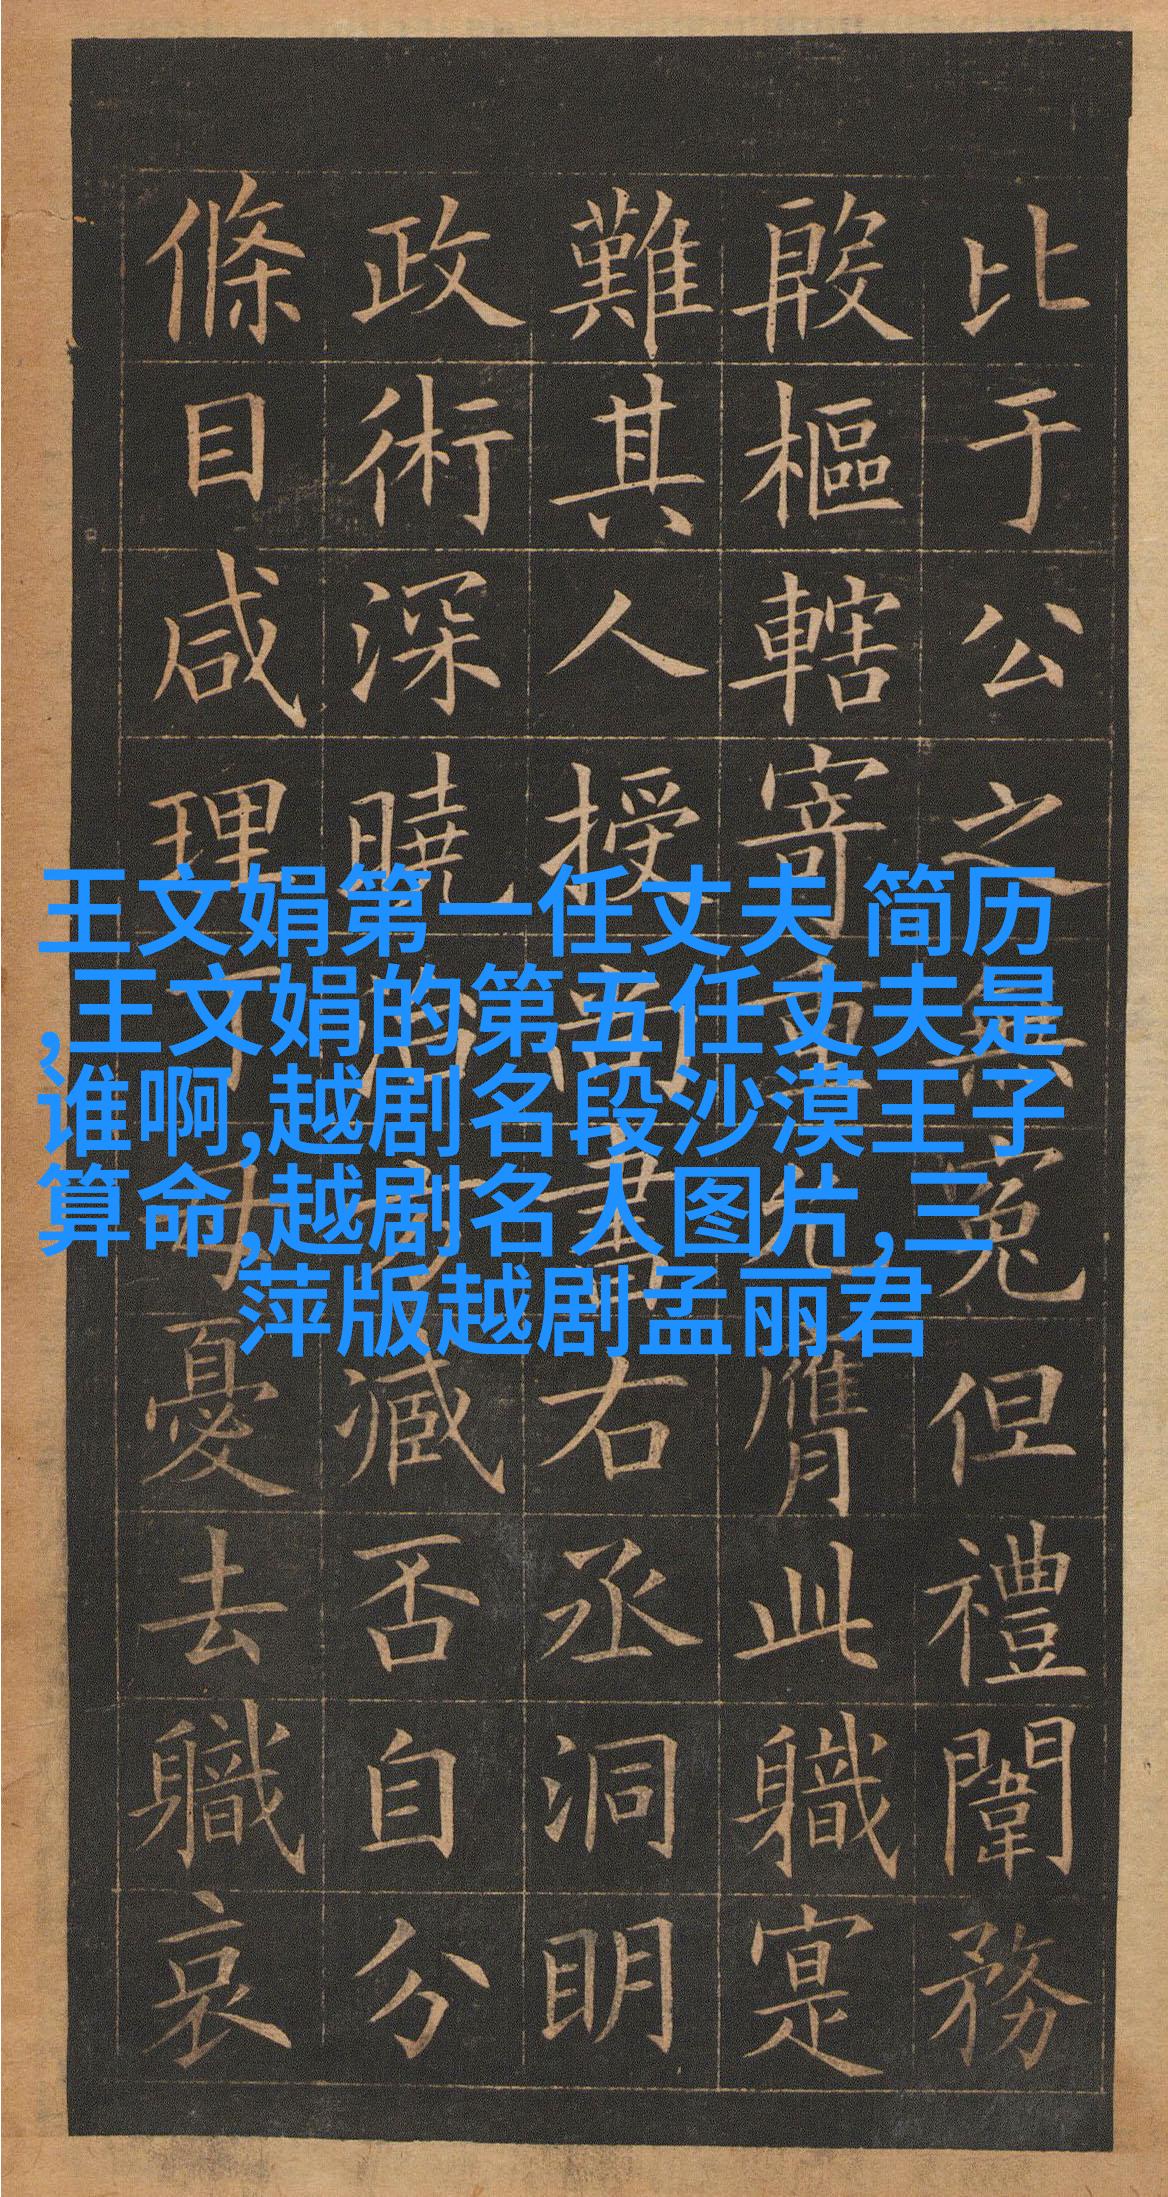 比于公之無冤但禮闈務
殷樞轄寄重允膺此職寔
難其人授尚書右丞洞明
政術深曉治方臧否自分
條目咸理丁母憂去職哀
王文娟第一任丈夫 简历
,王文娟的第五任丈夫是
谁啊,越剧名段沙漠王子
算命,越剧名人图片,三
萍版越剧孟丽君